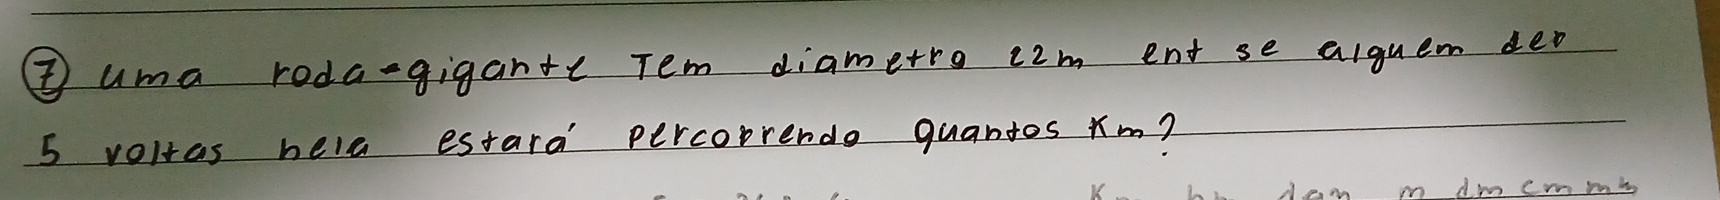 ⑦ uma roda-gigante Tem diametro 22m ent se alguem der
5 voltas nela estará percorrendo quantos Km?
dam m dm cm mm